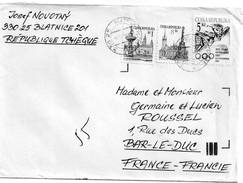 Josef NOVOTNÝ
330 25 BLATNICE 201
REPUBLIQUE TCHÈQUE
ČESKÁ REPUBLIKA
ČESKÁ REPUBLIKA
ČESKÁ REPUBLIKA
Madame et Monsieur
Germaine et Lucien
ROUSSEL
1, Rue des Ducs
BAR-LE-DUC
FRANCE - FRANCIE